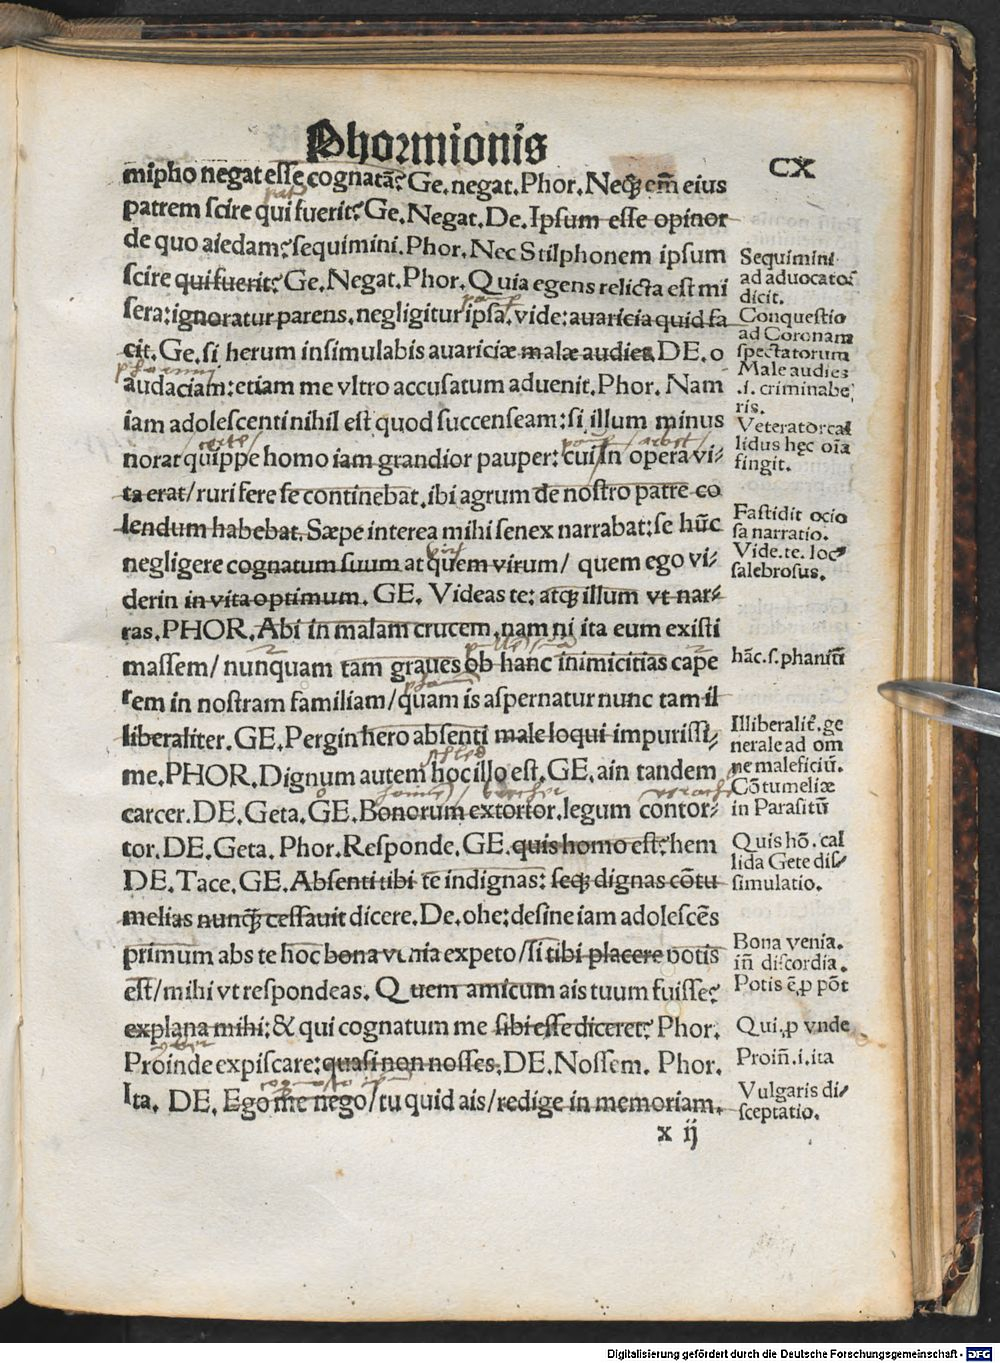 Phormionis
CX
mipho negat esse cognatã? Ge. negat. Phor. Neqꝫ em̃ eius
patrem scire qui fuerit? Ge. Negat. De. Ipsum esse opinor
de quo aiedam: sequimini. Phor. Nec Stilphonem ipsum
scire qui fuerit? Ge. Negat. Phor. Quia egens relicta est mi
sera: ignoratur parens. negligitur ipsa. vide: auaricia quid fa
cit. Ge. si herum insimulabis auariciæ malæ audies. DE. o
audaciam: etiam me vltro accusatum aduenit. Phor. Nam
iam adolescenti nihil est quod succenseam: si illum minus
norat quippe homo iam grandior pauper: cui in opera vi⸗
ta erat/ ruri fere se continebat. ibi agrum de nostro patre co
lendum habebat. Sæpe interea mihi senex narrabat: se hũc
negligere cognatum suum at quem virum/ quem ego vi⸗
derin in vita optimum. GE. Videas te: atqꝫ illum vt nar⸗
ras. PHOR. Abi in malam crucem. nam ni ita eum existi
massem/ nunquam tam graues ob hanc inimicitias cape
rem in nostram familiam/ quam is aspernatur nunc tam il
liberaliter. GE. Pergin hero absenti male loqui impurissi⸗
me. PHOR. Dignum autem hoc illo est. GE. ain tandem
carcer. DE. Geta. GE. Bonorum extortor. legum contor⸗
tor. DE. Geta. Phor. Responde. GE. quis homo est? hem
DE. Tace. GE. Absenti tibi te indignas: seqꝫ dignas cõtu
melias nunqꝫ cessauit dicere. De. ohe: desine iam adolescẽs
primum abs te hoc bona venia expeto/ si tibi placere potis
est/ mihi vt respondeas. Quem amicum ais tuum fuisse?
explana mihi: & qui cognatum me sibi esse diceret? Phor.
Proinde expiscare: quasi non nosses. DE. Nossem. Phor.
Ita. DE. Ego me nego/ tu quid ais/ redige in memoriam.
x ij
Sequimini
ad aduocatos
dicit.
Conquestio
ad Coronam
spectatorum
Male audies
.i. criminabe
ris.
Veterator cal
lidus hęc oĩa
fingit.
Fastidit ocio
sa narratio.
Vide. te. loc⁹
salebrosus.
hãc. s. phaniũ
Illiberalit̃. ge
nerale ad om
ne maleficiũ.
Cõtumeliæ
in Parasitũ
Quis hõ. cal
lida Gete dis/
simulatio.
Bona venia.
iñ discordia.
Potis ẽ, ꝓ põt
Qui, ꝓ vnde
Proiñ. i. ita
Vulgaris di/
sceptatio.
Digitalisierung gefördert durch die Deutsche Forschungsgemeinschaft - DFG